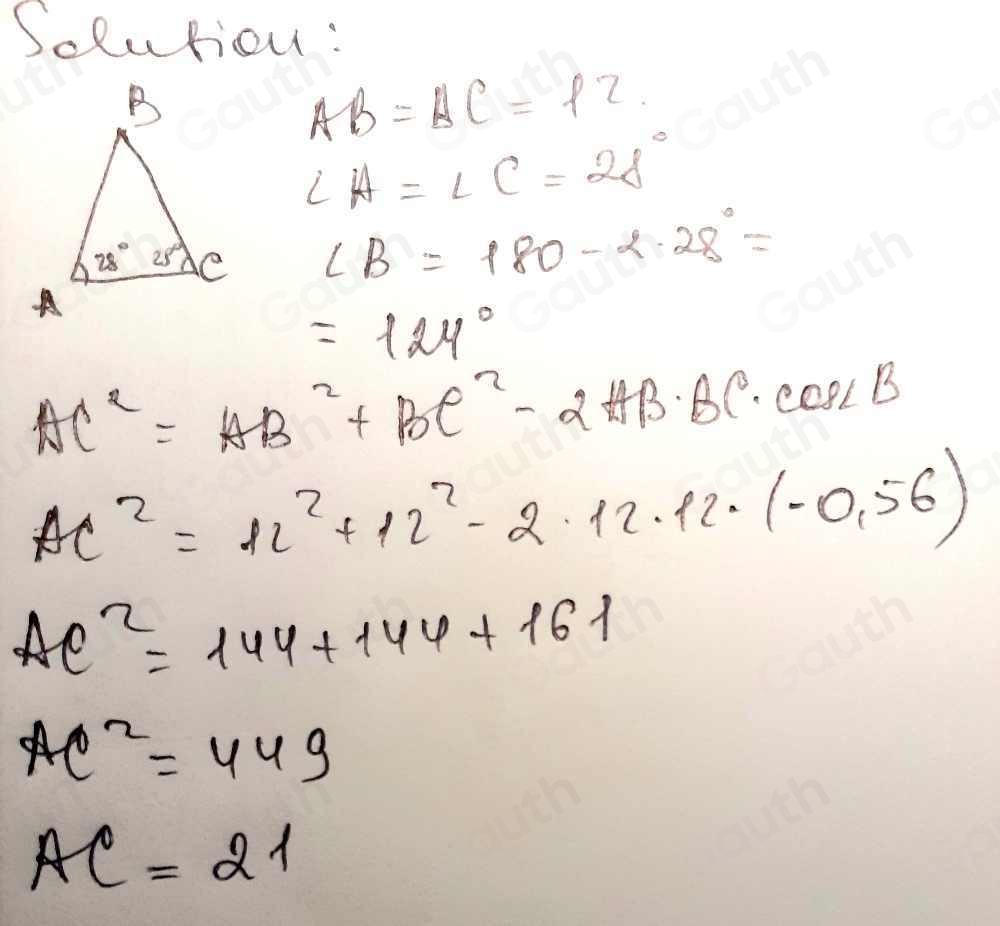 Solution:
B
AB = AC = 12.
∠A = ∠C = 28°
28° 28° C
∠B = 180 - 2·28° =
A
= 124°
AC² = AB² + BC² - 2AB·BC·cos∠B
AC² = 12² + 12² - 2·12·12·(-0,56)
AC² = 144 + 144 + 161
AC² = 449
AC = 21
Gauth